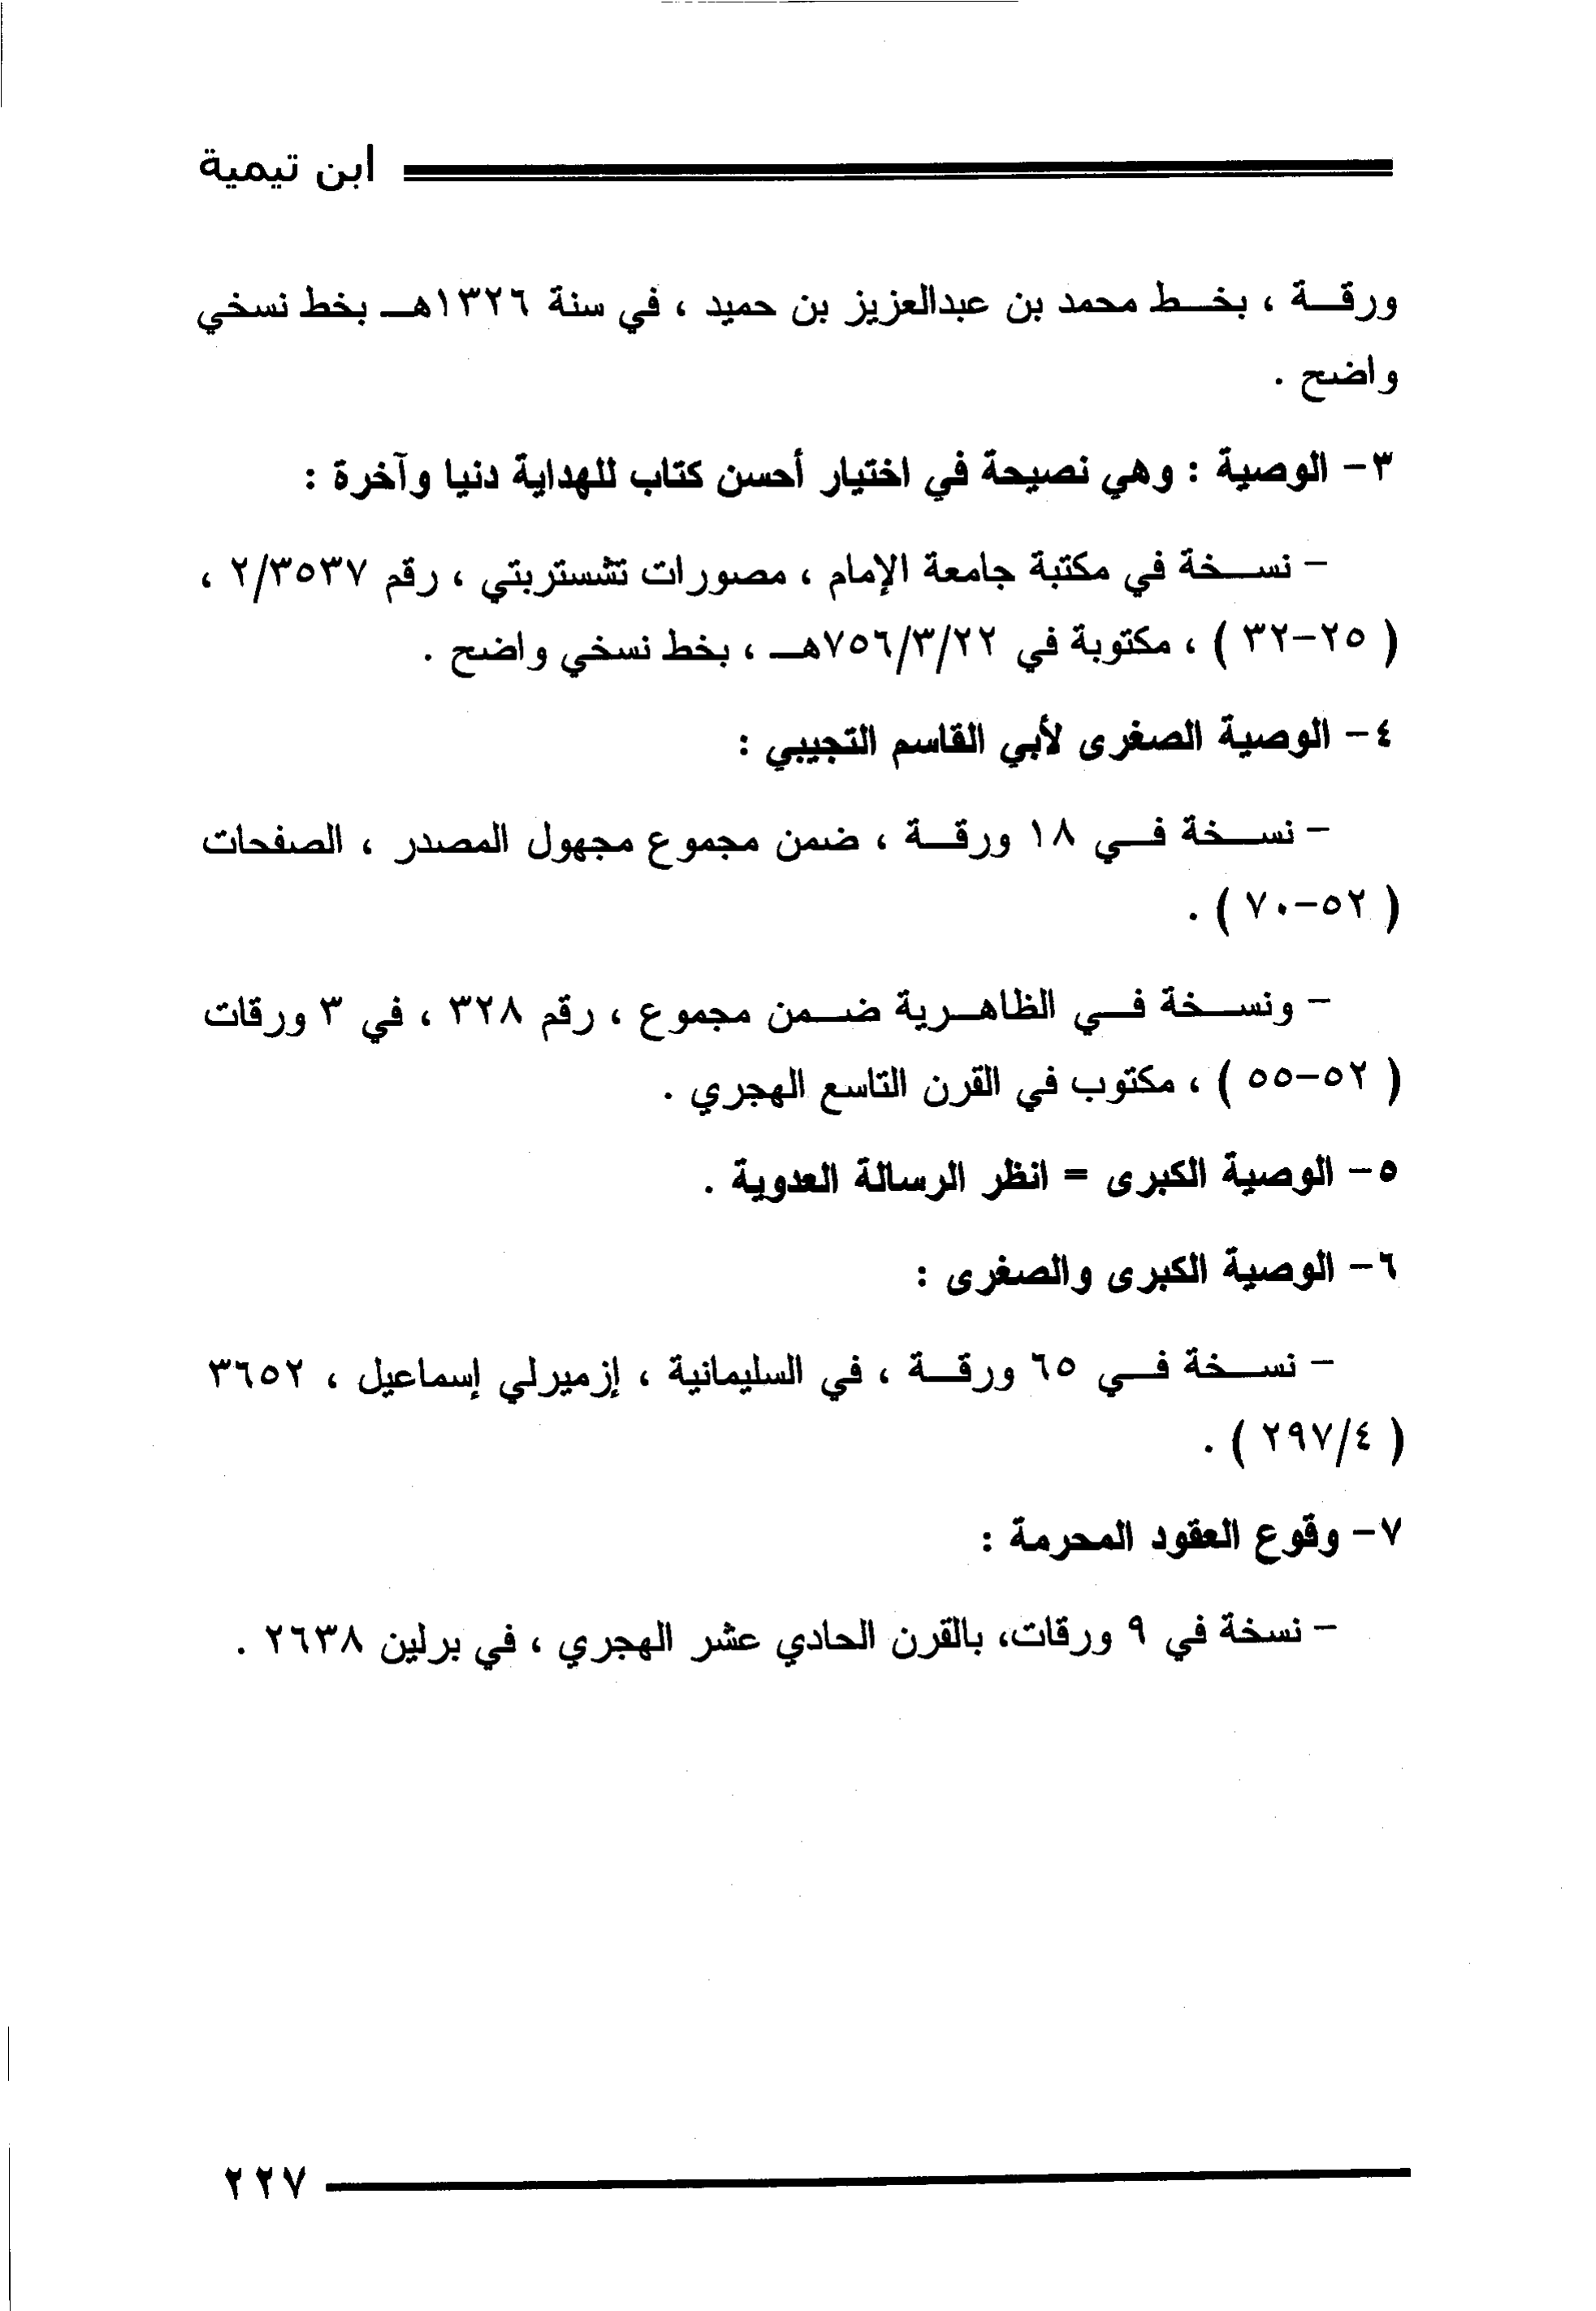 ابن تيمية
ورقة ، بخط محمد بن عبدالعزيز بن حميد ، في سنة ١٣٢٦هـ بخط نسخي
واضح .
٣- الوصية : وهي نصيحة في اختيار أحسن كتاب للهداية دنيا وآخرة :
- نسخة في مكتبة جامعة الإمام ، مصورات تشستربتي ، رقم ٢/٣٥٣٧ ،
( ٢٥-٣٢ ) ، مكتوبة في ٧٥٦/٣/٢٢هـ ، بخط نسخي واضح .
٤- الوصية الصغرى لأبي القاسم التجيبي :
- نسخة في ١٨ ورقة ، ضمن مجموع مجهول المصدر ، الصفحات
( ٥٢-٧٠ ) .
- ونسخة في الظاهرية ضمن مجموع ، رقم ٣٢٨ ، في ٣ ورقات
( ٥٢-٥٥ ) ، مكتوب في القرن التاسع الهجري .
٥- الوصية الكبرى = انظر الرسالة العدوية .
٦- الوصية الكبرى والصغرى :
- نسخة في ٦٥ ورقة ، في السليمانية ، إزميرلي إسماعيل ، ٣٦٥٢
( ٢٩٧/٤ ) .
٧- وقوع العقود المحرمة :
- نسخة في ٩ ورقات، بالقرن الحادي عشر الهجري ، في برلين ٢٦٣٨ .
٢٢٧